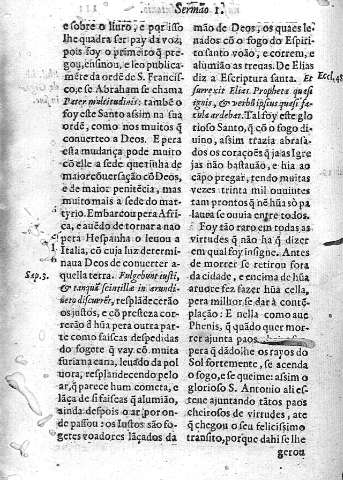 Sermão 1.
e sobre o liuro, e por isso
lhe quadra ser pay da voz,
pois foy o primeiro q̃ pre-
gou, ensinou, e leo publica-
mẽte da ordẽ de S. Francis-
co, e se Abraham se chama
Pater multitudinis: tambẽ o
foy este Santo assim na sua
ordẽ, como nos muitos q̃
conuerteo a Deos. E pera
esta mudança pode muito
cõ elle a sede que tinha de
maior cõuersação cõ Deos,
e de maior penitẽcia, mas
muito mais a sede do mar-
tyrio. Embarcou pera Afri-
ca, e auẽdo de tornar a nao
pera Hespanha o leuou a
Italia, cõ cuja luz determi-
naua Deos de conuerter a-
quella terra. Fulgebunt iusti,
Sap. 3.
& tanquã scintillæ in arundi-
neto discurrẽt, resplãdecerão
os justos, e cõ presteza cor-
rerão dhũa pera outra par-
te como faiscas despedidas
do fogo que vay cõ muita
furia na cana, leuado da pol
uora, resplandecendo pelo
ar, q̃ parece hum cometa, e
lãça de si faiscas q̃ alumião,
ainda despois o ar, por on-
de passou: os Iustos são fo-
getes voadores lãçados da
mão de Deos, os quaes le-
nados cõ o fogo do Espiri-
to santo voão, e correm, e
alumião as treuas. De Elias
diz a Escriptura santa. Et
surrexit Elias Propheta quasi
Eccl. 48
ignis, & verbũ ipsius quasi fa-
cula ardebat. Tal foy este glo-
rioso Santo, q̃ cõ o fogo di-
uino, assim trazia abrasa-
dos os coraçoẽs q̃ ja as Igre
jas não bastauão, e hia ao
cãpo pregar, tendo muitas
vezes trinta mil ouuintes
tam prontos q̃ nẽ hũa só pa
laura se ouuia entre todos.
Foy tão raro em todas as
virtudes q̃ não ha q̃ dizer
em qual foy insigne. Antes
de morrer se retirou fora
da cidade, e encima de hũa
aruore fez fazer hũa cella,
pera milhor se dar à contẽ-
plação: E nella como aue
Phenis, q̃ quãdo quer mor-
rer ajunta paos
pera q̃ dãdolhe os rayos do
Sol fortemente, se acenda
o fogo, e se queime: assim o
glorioso S. Antonio ali es-
teue ajuntando tãtos paos
cheirosos de virtudes, ate
q̃ chegou o seu felicissimo
transito, porque dahi se lhe
gerou